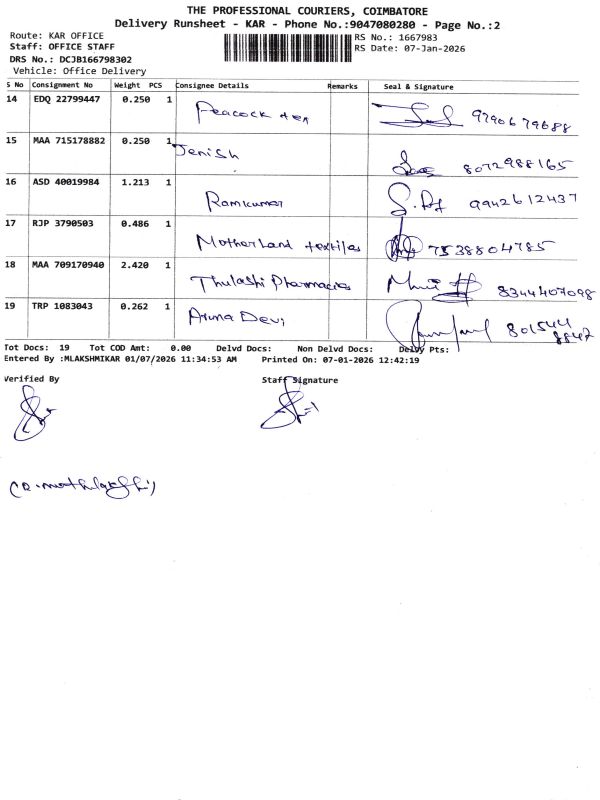 THE PROFESSIONAL COURIERS, COIMBATORE
Delivery Runsheet - KAR - Phone No.:9047080280 - Page No.:2
Route: KAR OFFICE RS No.: 1667983
Staff: OFFICE STAFF RS Date: 07-Jan-2026
DRS No.: DCJB166798302
Vehicle: Office Delivery
S No Consignment No Weight PCS Consignee Details Remarks Seal & Signature
14 EDQ 22799447 0.250 1 Peacock 9790679688
15 MAA 715178882 0.250 1 Jenish 8072988165
16 ASD 40019984 1.213 1 Ramkumar 9942612437
17 RJP 3790503 0.486 1 Motherland textiles 7538804785
18 MAA 709170940 2.420 1 Thulashi Pharmacies 8344407098
19 TRP 1083043 0.262 1 Aruna Devi 801544
8847
Tot Docs: 19 Tot COD Amt: 0.00 Delvd Docs: Non Delvd Docs: Delvy Pts:
Entered By :MLAKSHMIKAR 01/07/2026 11:34:53 AM Printed On: 07-01-2026 12:42:19
Verified By Staff Signature